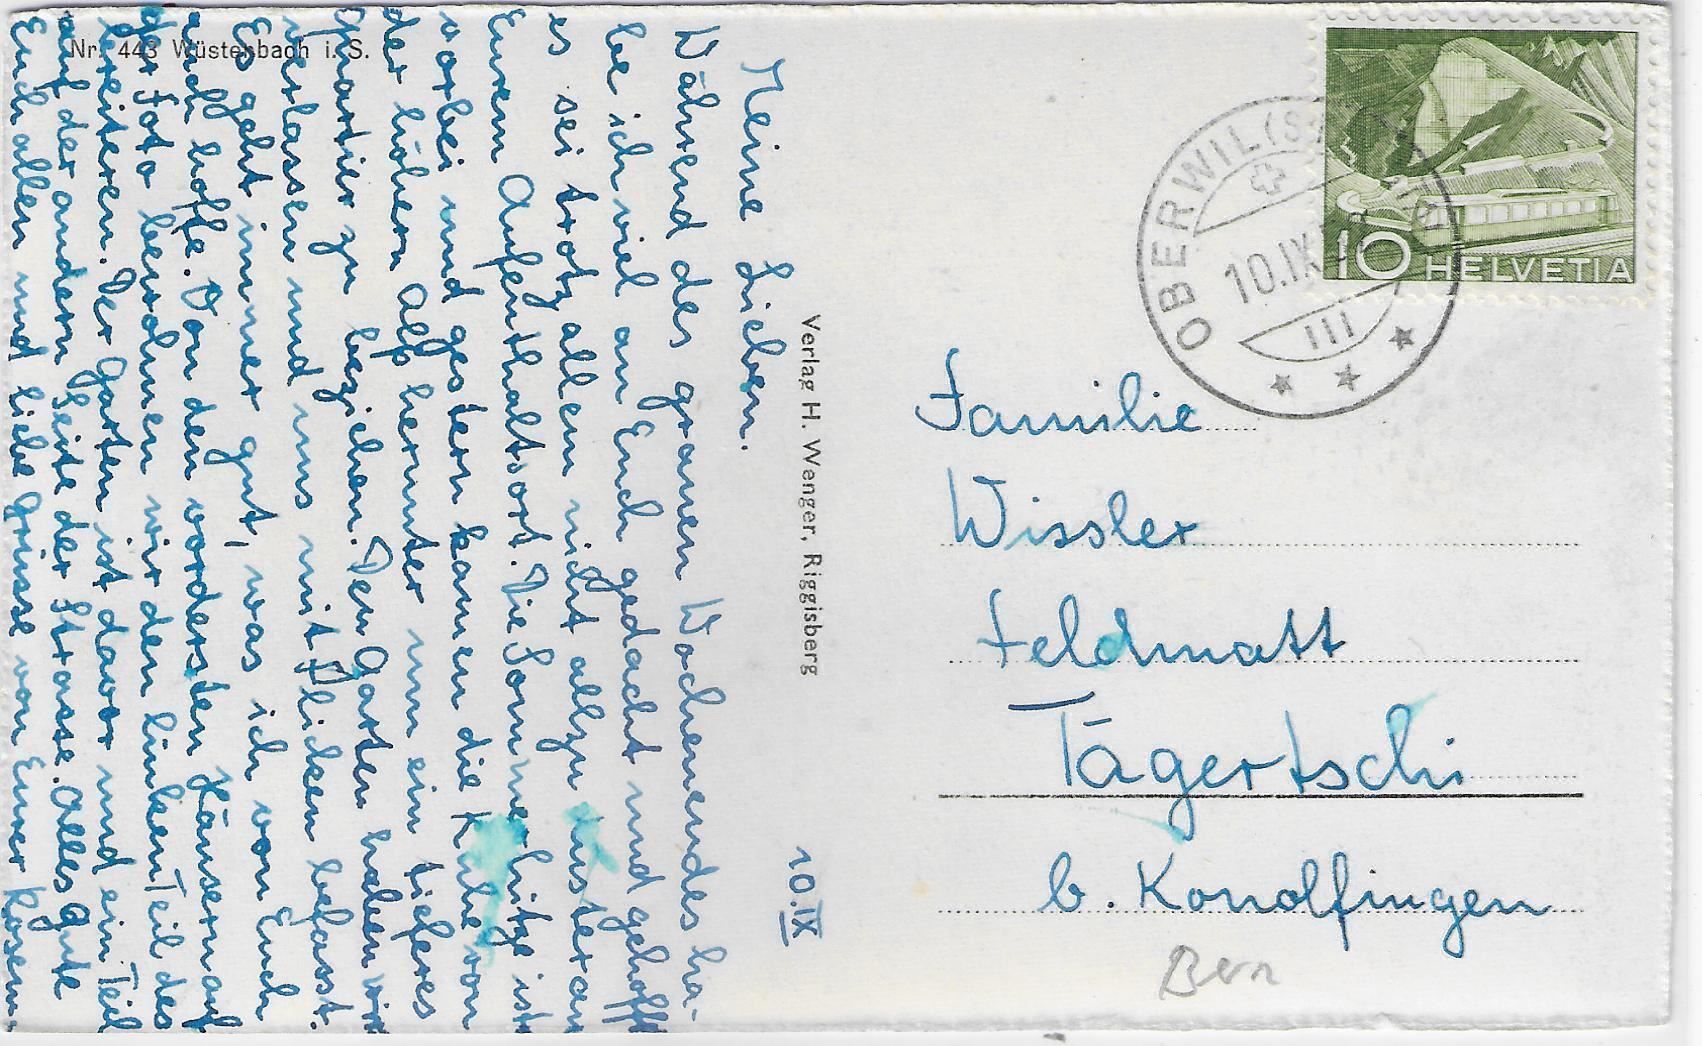 Nr. 443 Wüstenbach i. S.
10.IX
Meine Lieben.
Während des grauen Wochenendes ha-
be ich viel an Euch gedacht und gehofft
es sei trotz allem nicht allzu duster an
Eurem Aufenthaltsort. Die Sommerhitze ist
vorbei und gestern kamen die Kühe von
der höhern Alp herunter um ein tieferes
Quartier zu beziehen. Den Garten haben wir
verlassen und uns mit Flicken befasst.
Es geht immer gut, was ich von Euch
auch hoffe. Von den vordersten Häusern auf
der Foto bewohnen wir den linken Teil des
breiteren. Der Garten ist davor und ein Teil
auf der andern Seite der Strasse. Alles Gute
Euch allen und liebe Grüsse von Eurer Rosem.
Verlag H. Wenger, Riggisberg
OBERWIL (S
10.IX
III
10 HELVETIA
Familie
Wissler
Feldmatt
Tägertschi
b. Konolfingen
Bern